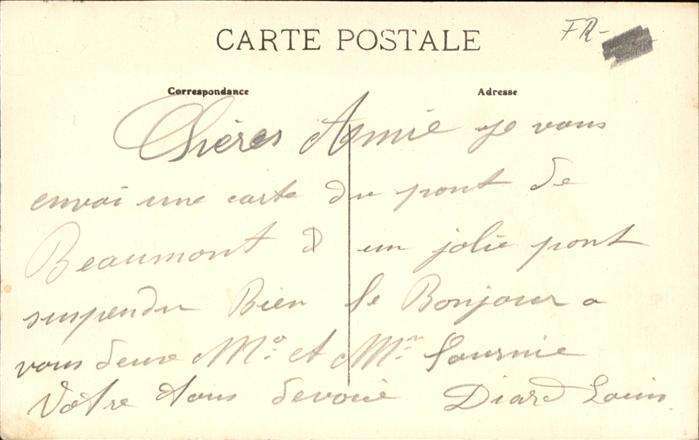 FR-
CARTE POSTALE
Correspondance Adresse
Chères Amie je vous
envoi une carte du pont de
Beaumont d un jolie pont
suspendu Bien le Bonjour a
vous deux Mr et Mme
Votre tous devoué Diard Louis